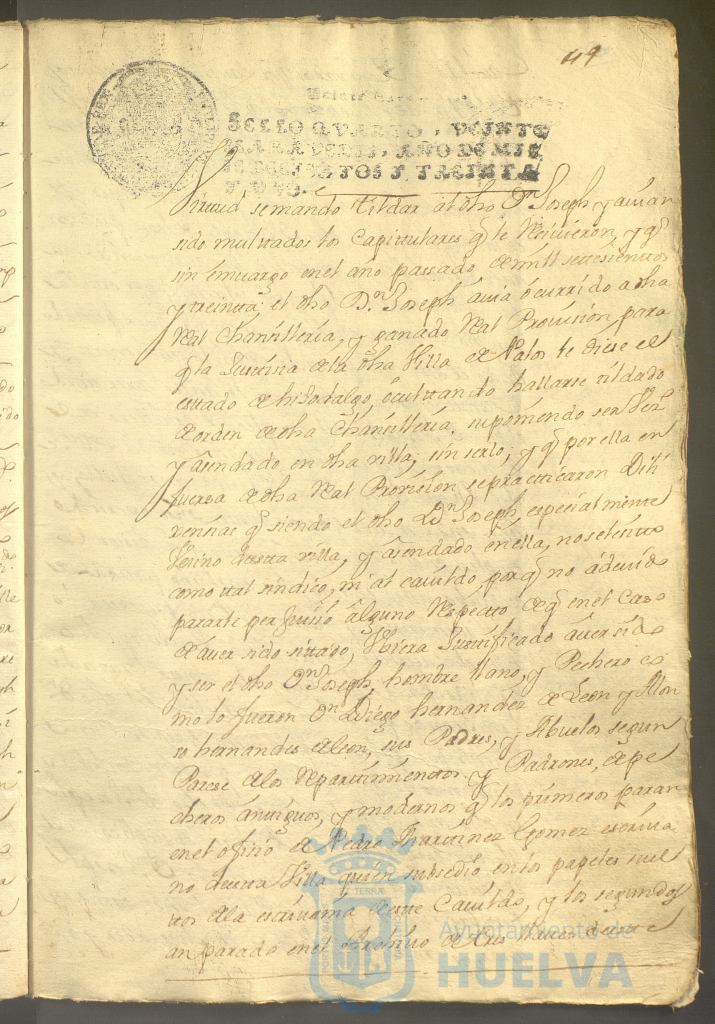 49
SELLO QVARTO, VEINTE
MARAVEDIS, AÑO DE MIL
SETECIENTOS Y TREINTA
Y VNO.
se mando tildar al dho Dn Joseph y auian
sido multados los Capitulares q le Reciuieron, y q
sin emuargo en el año passado de mill setesientos
y treinta, el dho Dn Joseph auia ocurrido a dha
Rl Chansilleria, y ganado Rl Prouision para
q la Justisia de la dha Villa de Palos le diese el
estado de hidalgo, ocultando hallarse tildado
de orden de dha Chansilleria, suponiendo ser Vezº
y asendado en dha villa, sin serlo; y q por ella en
fuersa de dha Rl Prouision se practicaron Dili
xensias q siendo el dho Dn Joseph, espesialmente
Vesino de esta villa, y asendado en ella, no se sito
como tal sindico, ni al cauildo, por q no deuia
pararle perjuisio alguno Respecto de q en el caso
de auer sido sitado, Vbiera Justificado auer sido
y ser el dho Dn Joseph, hombre llano, y Pechero co
mo lo fueron Dn Diego hernandez de Leon y Alon
so hernandes de leon, sus Padres, y Abuelos segun
Parese de los Repartimientos y Padrones, de pe
cheros antiguos, y modernos q los primeros paran
en el ofisio de Pedro Martinez Gomez escriua
no de esta Villa quien subsedio en los papeles
tos de la escriuania de este Cauildo, y los segundos
an parado en el Archiuo de tres llaues de este
Ayuntamiento de
HUELVA